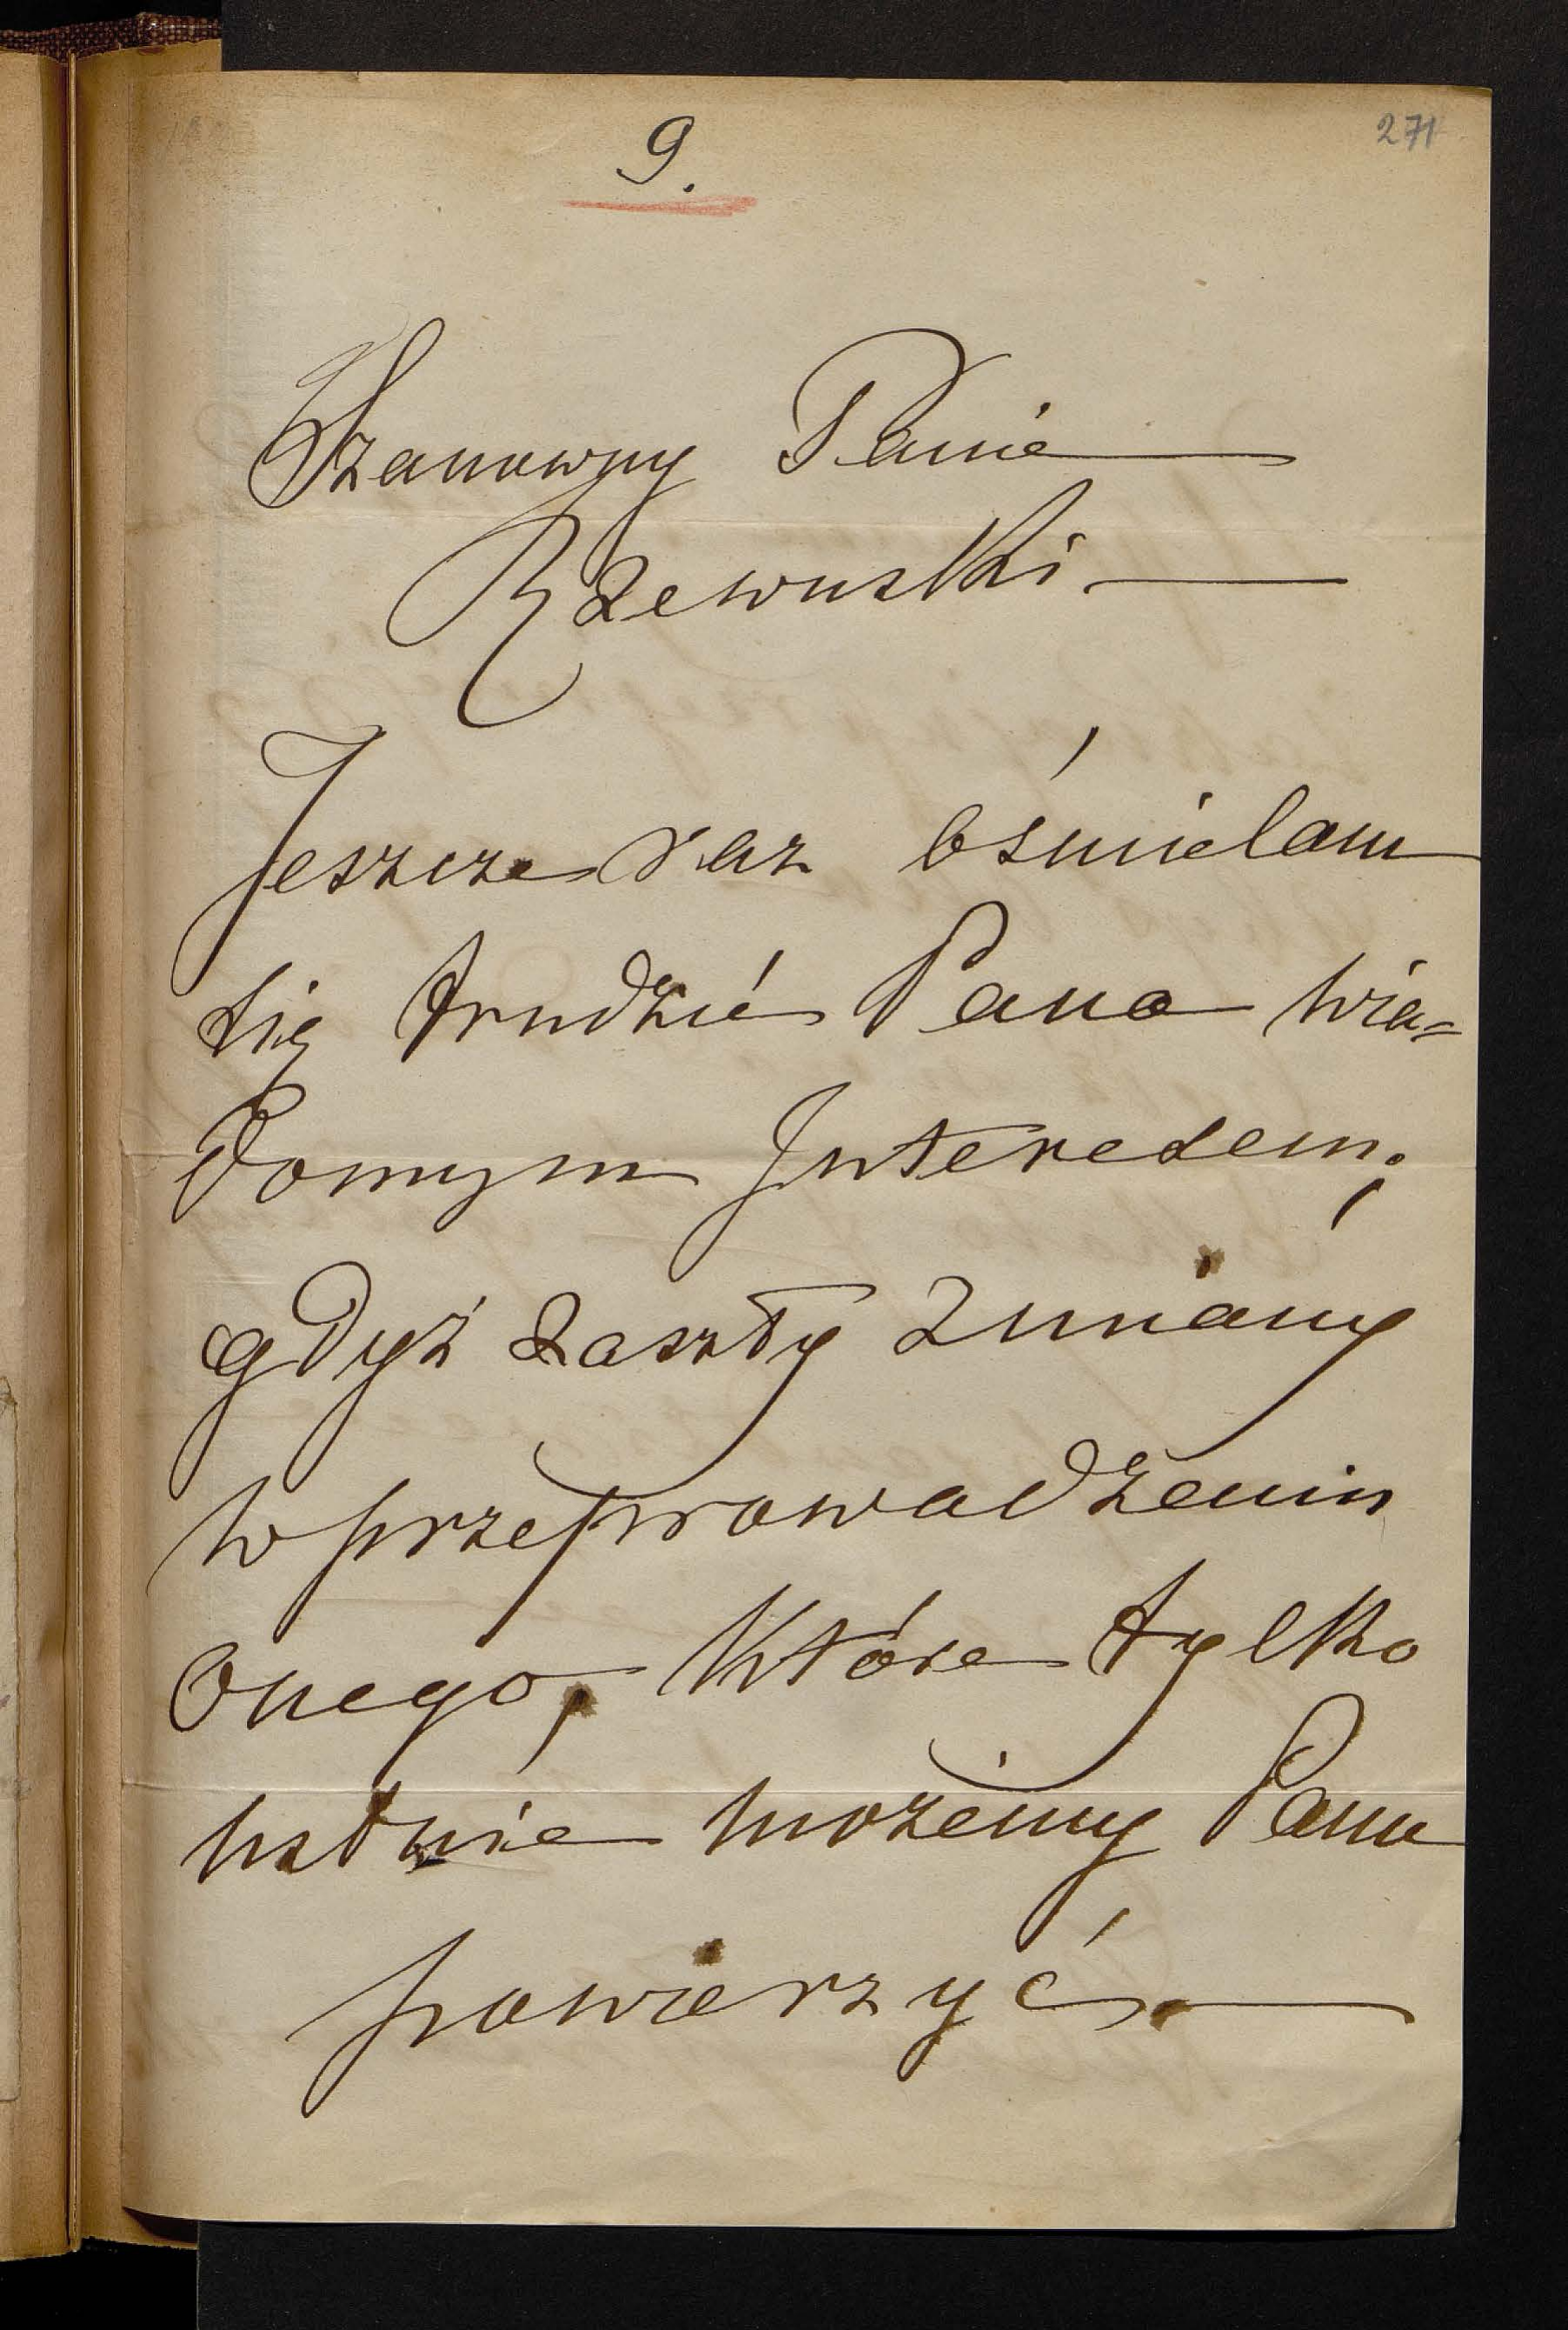 9.
271
Szanowny Panie
Rzewuski
Jeszcze raz ośmielam
się trudzić Pana wia=
domym Interesem;
gdyż zaszły zmiany
w przeprowadzeniu
onego, które tylko
ustnie możemy Panu
powierzyć.